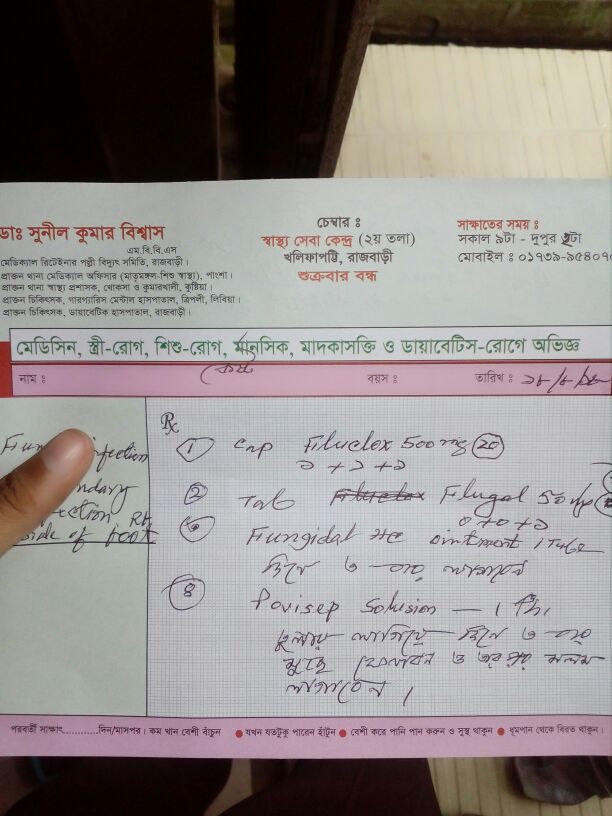 ডাঃ সুনীল কুমার বিশ্বাস
এম.বি.বি.এস
মেডিক্যাল রিটেইনার পল্লী বিদ্যুৎ সমিতি, রাজবাড়ী।
প্রাক্তন থানা মেডিক্যাল অফিসার (মাতৃমঙ্গল-শিশু স্বাস্থ্য), পাংশা।
প্রাক্তন থানা স্বাস্থ্য প্রশাসক, খোকসা ও কুমারখালী, কুষ্টিয়া।
প্রাক্তন চিকিৎসক, গারগ্যারিস মেন্টাল হাসপাতাল, ত্রিপলী, লিবিয়া।
প্রাক্তন চিকিৎসক, ডায়াবেটিক হাসপাতাল, রাজবাড়ী।
চেম্বার ঃ
স্বাস্থ্য সেবা কেন্দ্র (২য় তলা)
খলিফাপট্টি, রাজবাড়ী
শুক্রবার বন্ধ
সাক্ষাতের সময় ঃ
সকাল ৯টা - দুপুর ২টা
মোবাইল ঃ ০১৭৩৯-৯৫৪০৭
মেডিসিন, স্ত্রী-রোগ, শিশু-রোগ, মানসিক, মাদকাসক্তি ও ডায়াবেটিস-রোগে অভিজ্ঞ
নাম ঃ বয়স ঃ তারিখ ঃ
infection
Rt
side of foot
Rx
1 Cap Fluclox 500 mg 20
১+১+১
2 Tab Flugal 50 mg
০+০+১
৩ Fungidal HC ointment 1 Tube
দিনে ৩ বার লাগাবেন
৪ Povisep Solusion — 1
তুলায় লাগিয়ে দিনে ৩ বার
মুছে ফেলবেন ও তারপর মলম
লাগাবেন।
পরবর্তী সাক্ষাৎ............দিন/মাসপর। কম খান বেশী বাঁচুন ● যখন যতটুকু পারেন হাঁটুন ● বেশী করে পানি পান করুন ও সুস্থ থাকুন ● ধূমপান থেকে বিরত থাকুন।